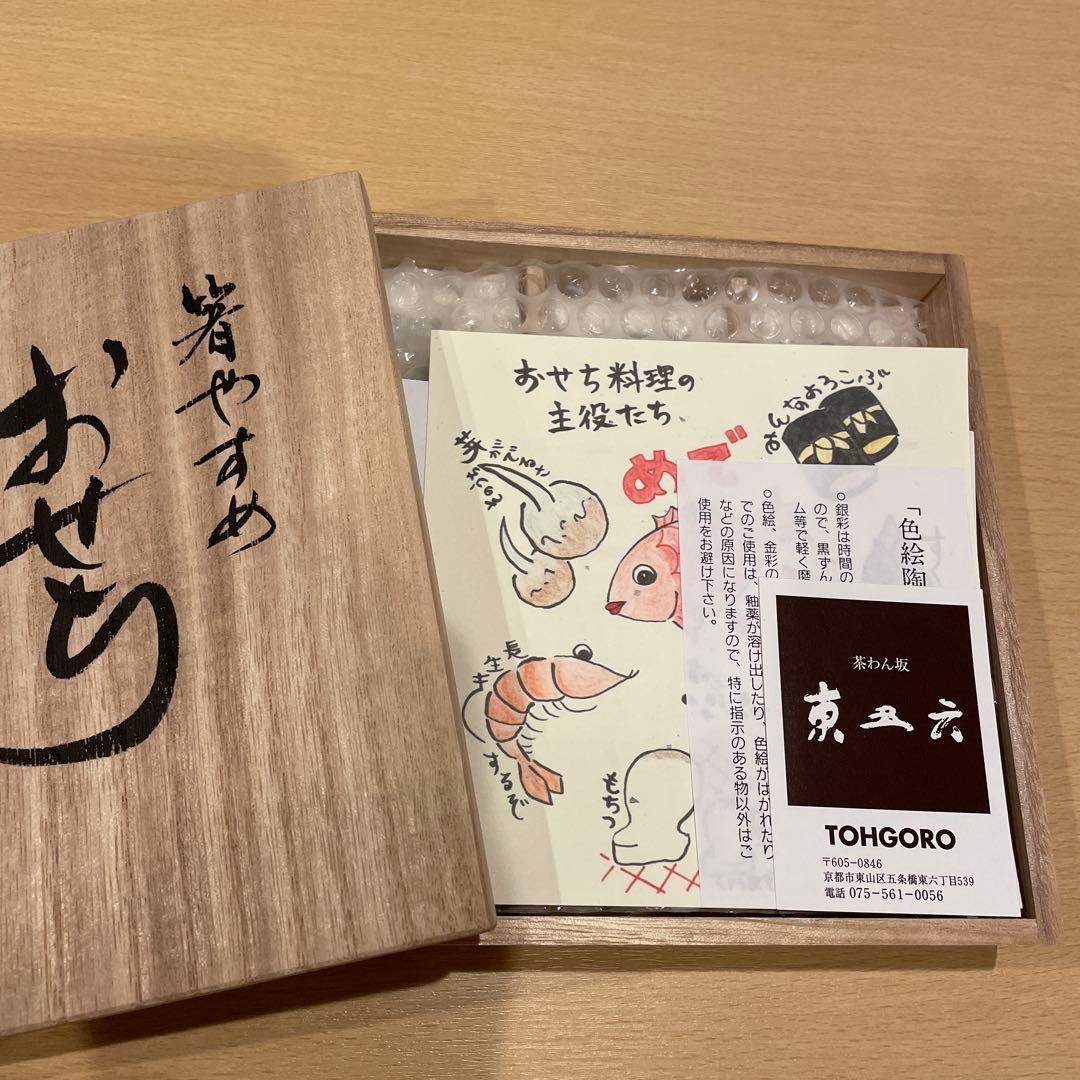 箸やすめ
おせち
おせち料理の
主役たち
みんなよろこぶ
芽がでるぞ
めで
長生き
するぞ
もちつ
「色絵陶
○銀彩は時間の
ので、黒ずん
ム等で軽く磨
○色絵、金彩の
でのご使用は、釉薬が溶け出したり、色絵がはがれたり
などの原因になりますので、特に指示のある物以外はご
使用をお避け下さい。
茶わん坂
東五六
TOHGORO
〒605-0846
京都市東山区五条橋東六丁目539
電話 075-561-0056